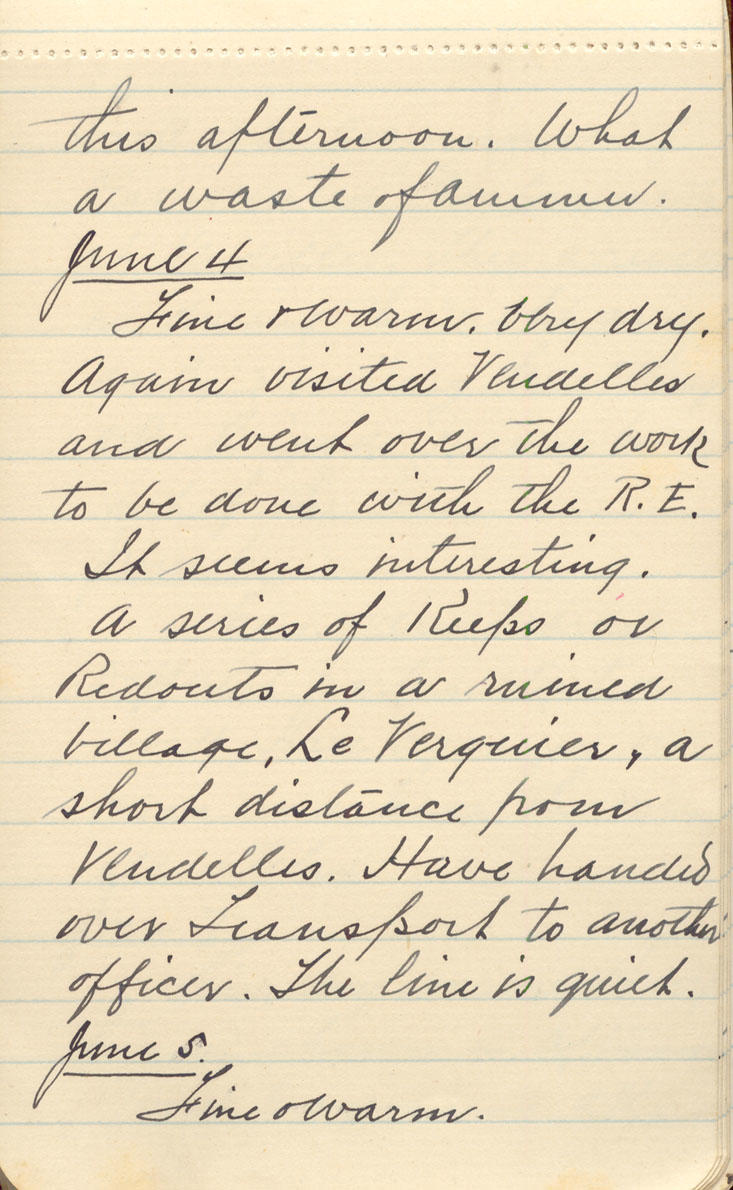 this afternoon. What
a waste of ammu.
June 4
Fine & warm. Very dry.
Again visited Vendelles
and went over the work
to be done with the R.E.
It seems interesting.
A series of Keeps or
Redouts in a ruined
village, Le Verguier, a
short distance from
Vendelles. Have handed
over Transport to another
officer. The line is quiet.
June 5.
Fine & warm.